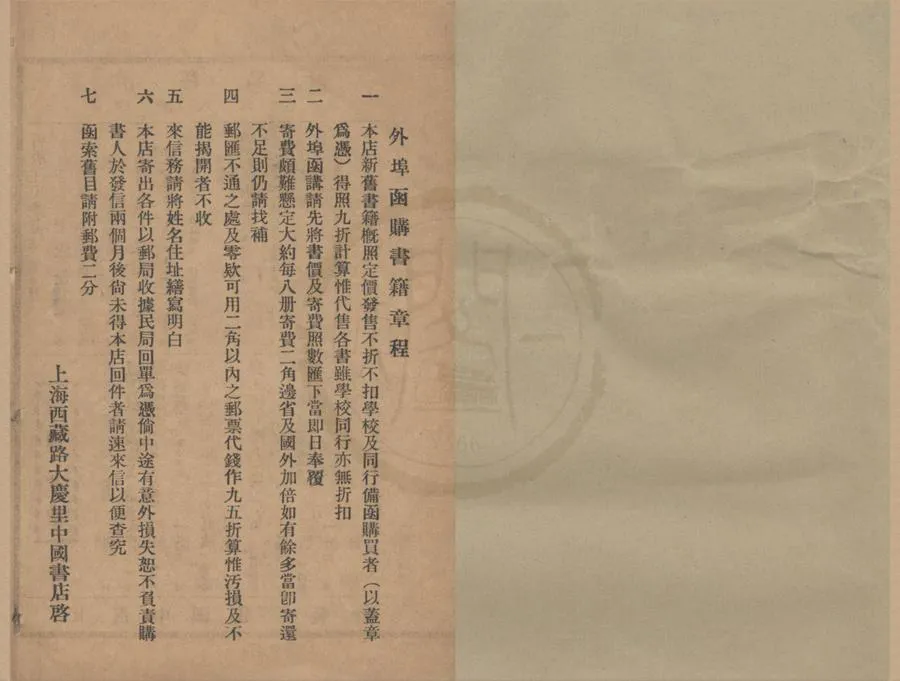 外埠函購書籍章程
一 本店新舊書籍槪照定價發售不折不扣學校及同行備函購買者（以蓋章
爲憑）得照九折計算惟代售各書雖學校同行亦無折扣
二 外埠函講請先將書價及寄費照數匯下當即日奉覆
三 寄費頗難懸定大約每八册寄費二角邊省及國外加倍如有餘多當卽寄還
不足則仍請找補
四 郵匯不通之處及零欵可用二角以內之郵票代錢作九五折算惟汚損及不
能揭開者不收
五 來信務請將姓名住址繕寫明白
六 本店寄出各件以郵局收據民局回單爲憑倘中途有意外損失恕不負責購
書人於發信兩個月後尙未得本店回件者請速來信以便查究
七 函索舊目請附郵費二分
上海西藏路大慶里中國書店啓